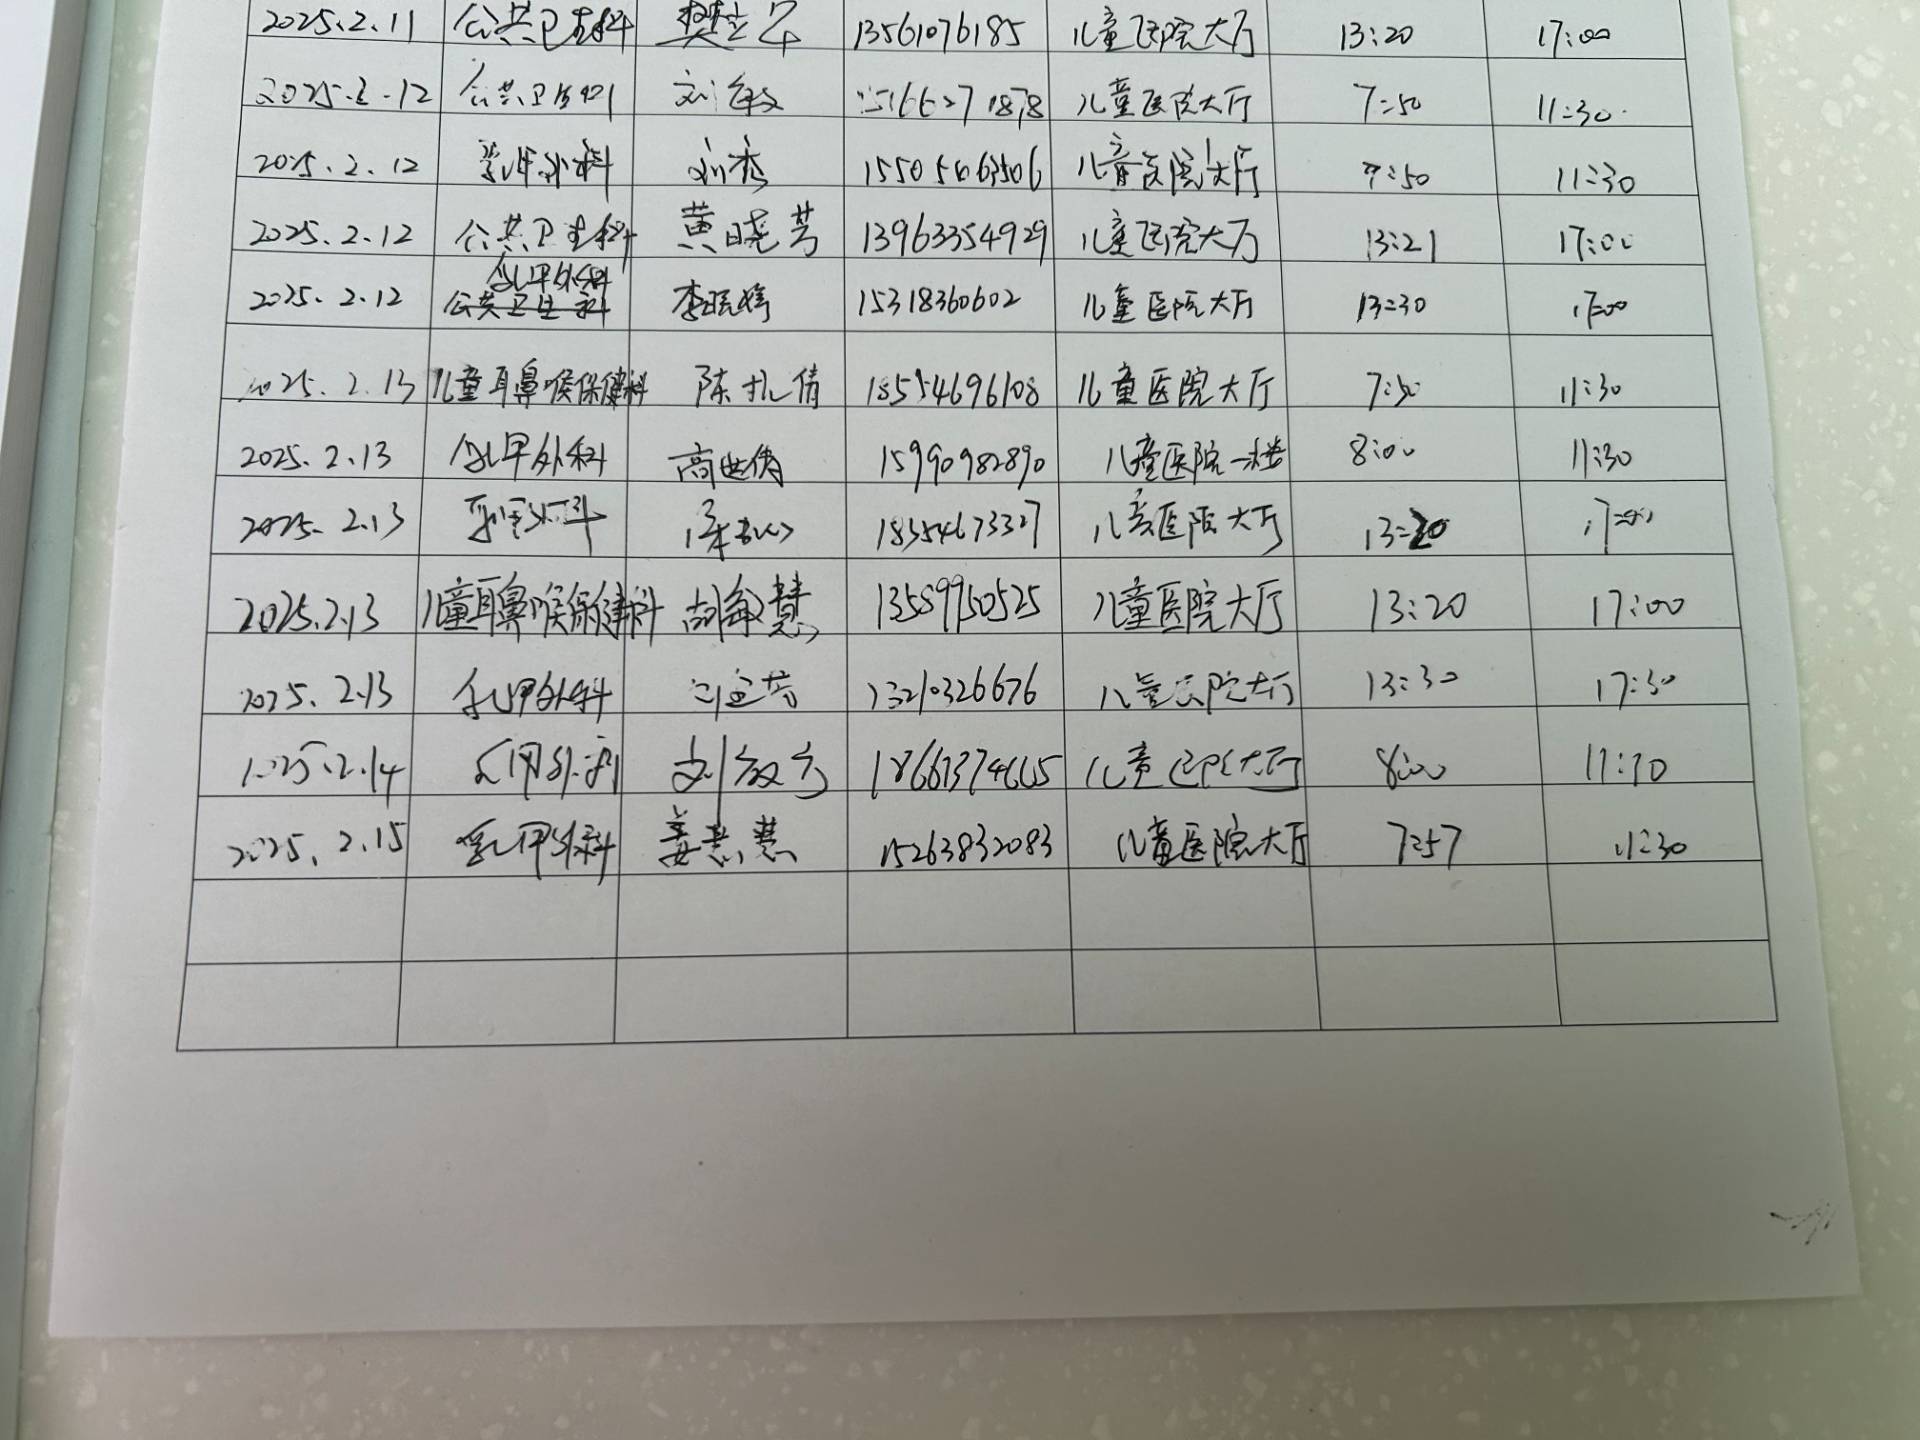 2025.2.11 公共卫生科 13561076185 儿童医院大厅 13:20 17:00
2025.2.12 公共卫生科 刘敏 儿童医院大厅 7:50 11:30
2025.2.12 乳甲外科 刘秀 15505463506 儿童医院大厅 7:50 11:30
2025.2.12 公共卫生科 黄晓芳 13963354929 儿童医院大厅 13:21 17:00
乳甲外科
2025.2.12 公共卫生科 李晓婷 15318360602 儿童医院大厅 13:30 17:00
2025.2.13 儿童耳鼻喉保健科 陈扎倩 18554696108 儿童医院大厅 7:50 11:30
2025.2.13 乳甲外科 高世倩 15990982890 儿童医院一楼 8:00 11:30
2025.2.13 18354673327 儿童医院大厅 13:20 17:00
2025.2.13 儿童耳鼻喉保健科 胡敏慧 13589950525 儿童医院大厅 13:20 17:00
2025.2.13 乳甲外科 13210326676 儿童医院大厅 13:30 17:30
2025.2.14 乳甲外科 刘敏 儿童医院大厅 8:00 11:30
2025.2.15 乳甲外科 姜慧慧 15263832083 儿童医院大厅 7:57 11:30